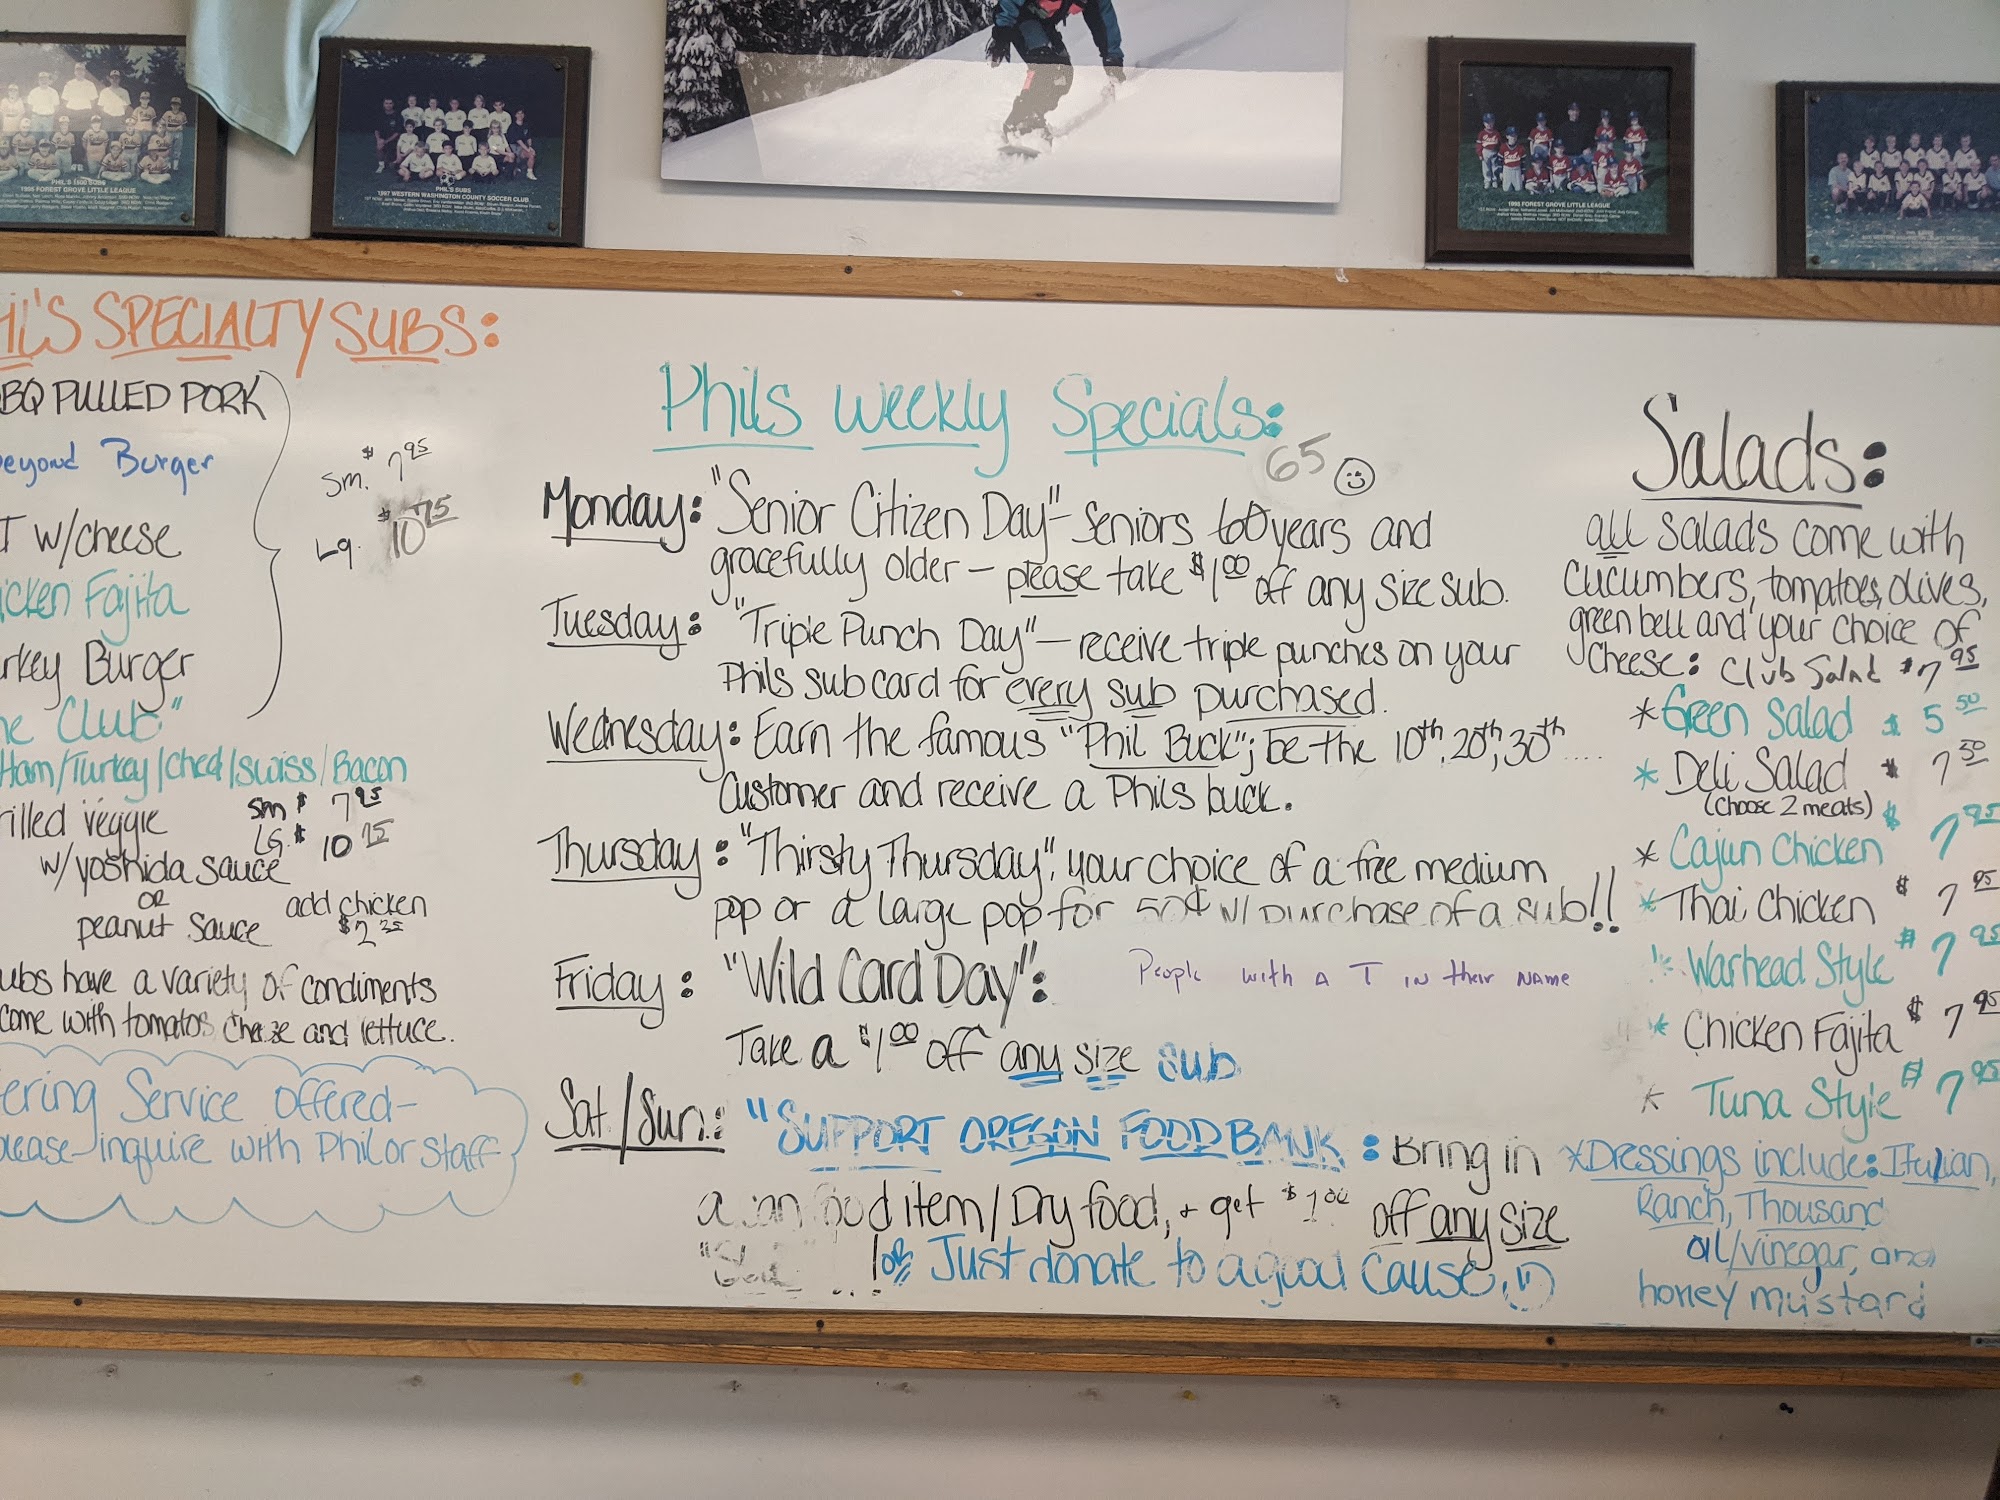 PHIL'S 1500 SUBS
1996 FOREST GROVE LITTLE LEAGUE
PHIL'S SUBS
1997 WESTERN WASHINGTON COUNTY SOCCER CLUB
1995 FOREST GROVE LITTLE LEAGUE
IL'S SPECIALTY SUBS:
BQ PULLED PORK
eyond Burger
T W/cheese
icken Fajita
rkey Burger
he Club"
Ham/Turkey/Ched/Swiss/Bacon
sm. $ 7 95
Lg. $ 10 75
rilled veggie sm $ 7 95
LG. $ 10 75
w/yoshida sauce
OR
peanut sauce
add chicken
$2 25
ubs have a variety of condiments
come with tomatos, cheese and lettuce.
ering Service offered-
lease inquire with Phil or staff
Phils Weekly Specials:
65
Monday: "Senior Citizen Day" - Seniors 60 years and
gracefully older - please take $1.00 off any size sub.
Tuesday: "Triple Punch Day" - receive triple punches on your
Phils sub card for every sub purchased.
Wednesday: Earn the famous "Phil Buck"; be the 10th, 20th, 30th ....
Customer and receive a Phils buck.
Thursday: "Thirsty Thursday", your choice of a free medium
pop or a large pop for 50¢ w/ purchase of a sub!!
Friday: "Wild Card Day": People with a T in their name
Take a $1.00 off any size sub
Sat./Sun.: "SUPPORT OREGON FOOD BANK: Bring in
a can food item/Dry food, + get $1.00 off any size
! or Just donate to a good cause.
Salads:
all salads come with
cucumbers, tomatoes, olives,
green bell and your choice of
cheese: Club Salad $7 95
*Green Salad $ 5 50
* Deli Salad $ 7 50
(choose 2 meats)
* Cajun Chicken $ 7 95
* Thai Chicken $ 7 95
* Warhead Style $ 7 95
* Chicken Fajita $ 7 95
* Tuna Style $ 7 95
*Dressings include: Italian,
Ranch, Thousand
oil/vinegar, and
honey mustard